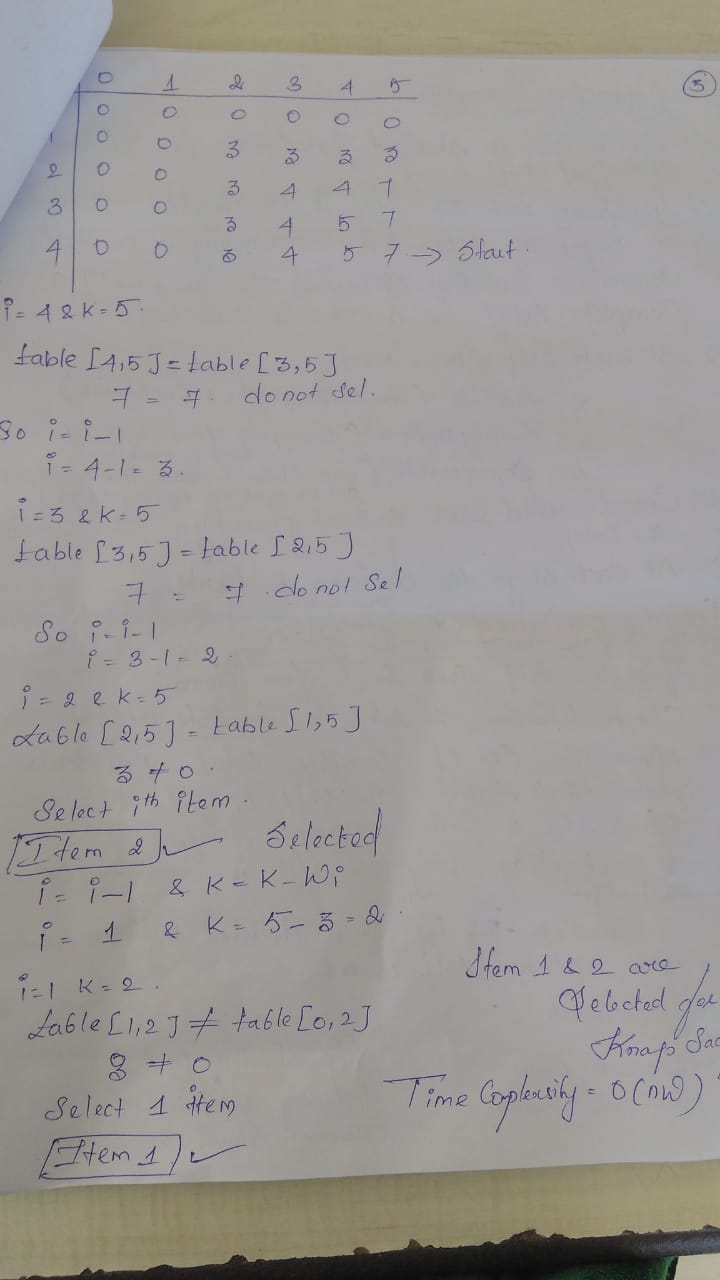 0 1 2 3 4 5
5
0 0 0 0 0 0
1 0 0 3 3 3 3
2 0 0 3 4 4 7
3 0 0 3 4 5 7
4 0 0 3 4 5 7 → Start.
i = 4 & K = 5.
table [4,5] = table [3,5]
7 = 7. do not sel.
So i = i-1
i = 4-1 = 3.
i = 3 & K = 5
table [3,5] = table [2,5]
7 = 7. do not Sel
So i = i-1
i = 3-1 = 2.
i = 2 & K = 5
table [2,5] = table [1,5]
3 ≠ 0.
Select ith item.
Item 2 ✓ Selected
i = i-1 & K = K - Wi
i = 1 & K = 5-3 = 2.
i=1 K = 2.
table [1,2] ≠ table [0,2]
3 ≠ 0
Select 1 item
Item 1 ✓
Item 1 & 2 are
Selected for
Knap Sac
Time Complexity = O(nW)